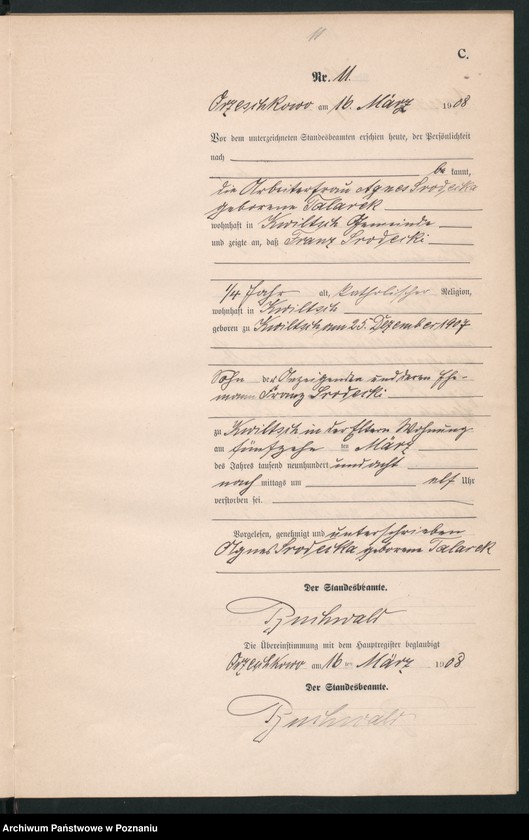 11
C.
Nr. 11.
Orzeschkowo am 16. März 1908
Vor dem unterzeichneten Standesbeamten erschien heute, der Persönlichkeit
nach
be kannt,
die Arbeiterfrau Agnes Srodecka
geborene Talarek
wohnhaft in Kwiltsch Gemeinde
und zeigte an, daß Franz Srodecki
1/4 Jahr alt, katholischer Religion,
wohnhaft in Kwiltsch
geboren zu Kwiltsch, am 25. Dezember 1907
Sohn der Anzeigenden und deren Ehe-
mann Franz Srodecki
zu Kwiltsch in der Eltern Wohnung
am fünfzehnten März
des Jahres tausend neunhundert und acht
nach mittags um elf Uhr
verstorben sei.
Vorgelesen, genehmigt und unterschrieben
Agnes Srodecka geborene Talarek
Der Standesbeamte.
Buchwald
Die Übereinstimmung mit dem Hauptregister beglaubigt
Orzeschkowo am 16ten März 1908
Der Standesbeamte.
Buchwald
Archiwum Państwowe w Poznaniu